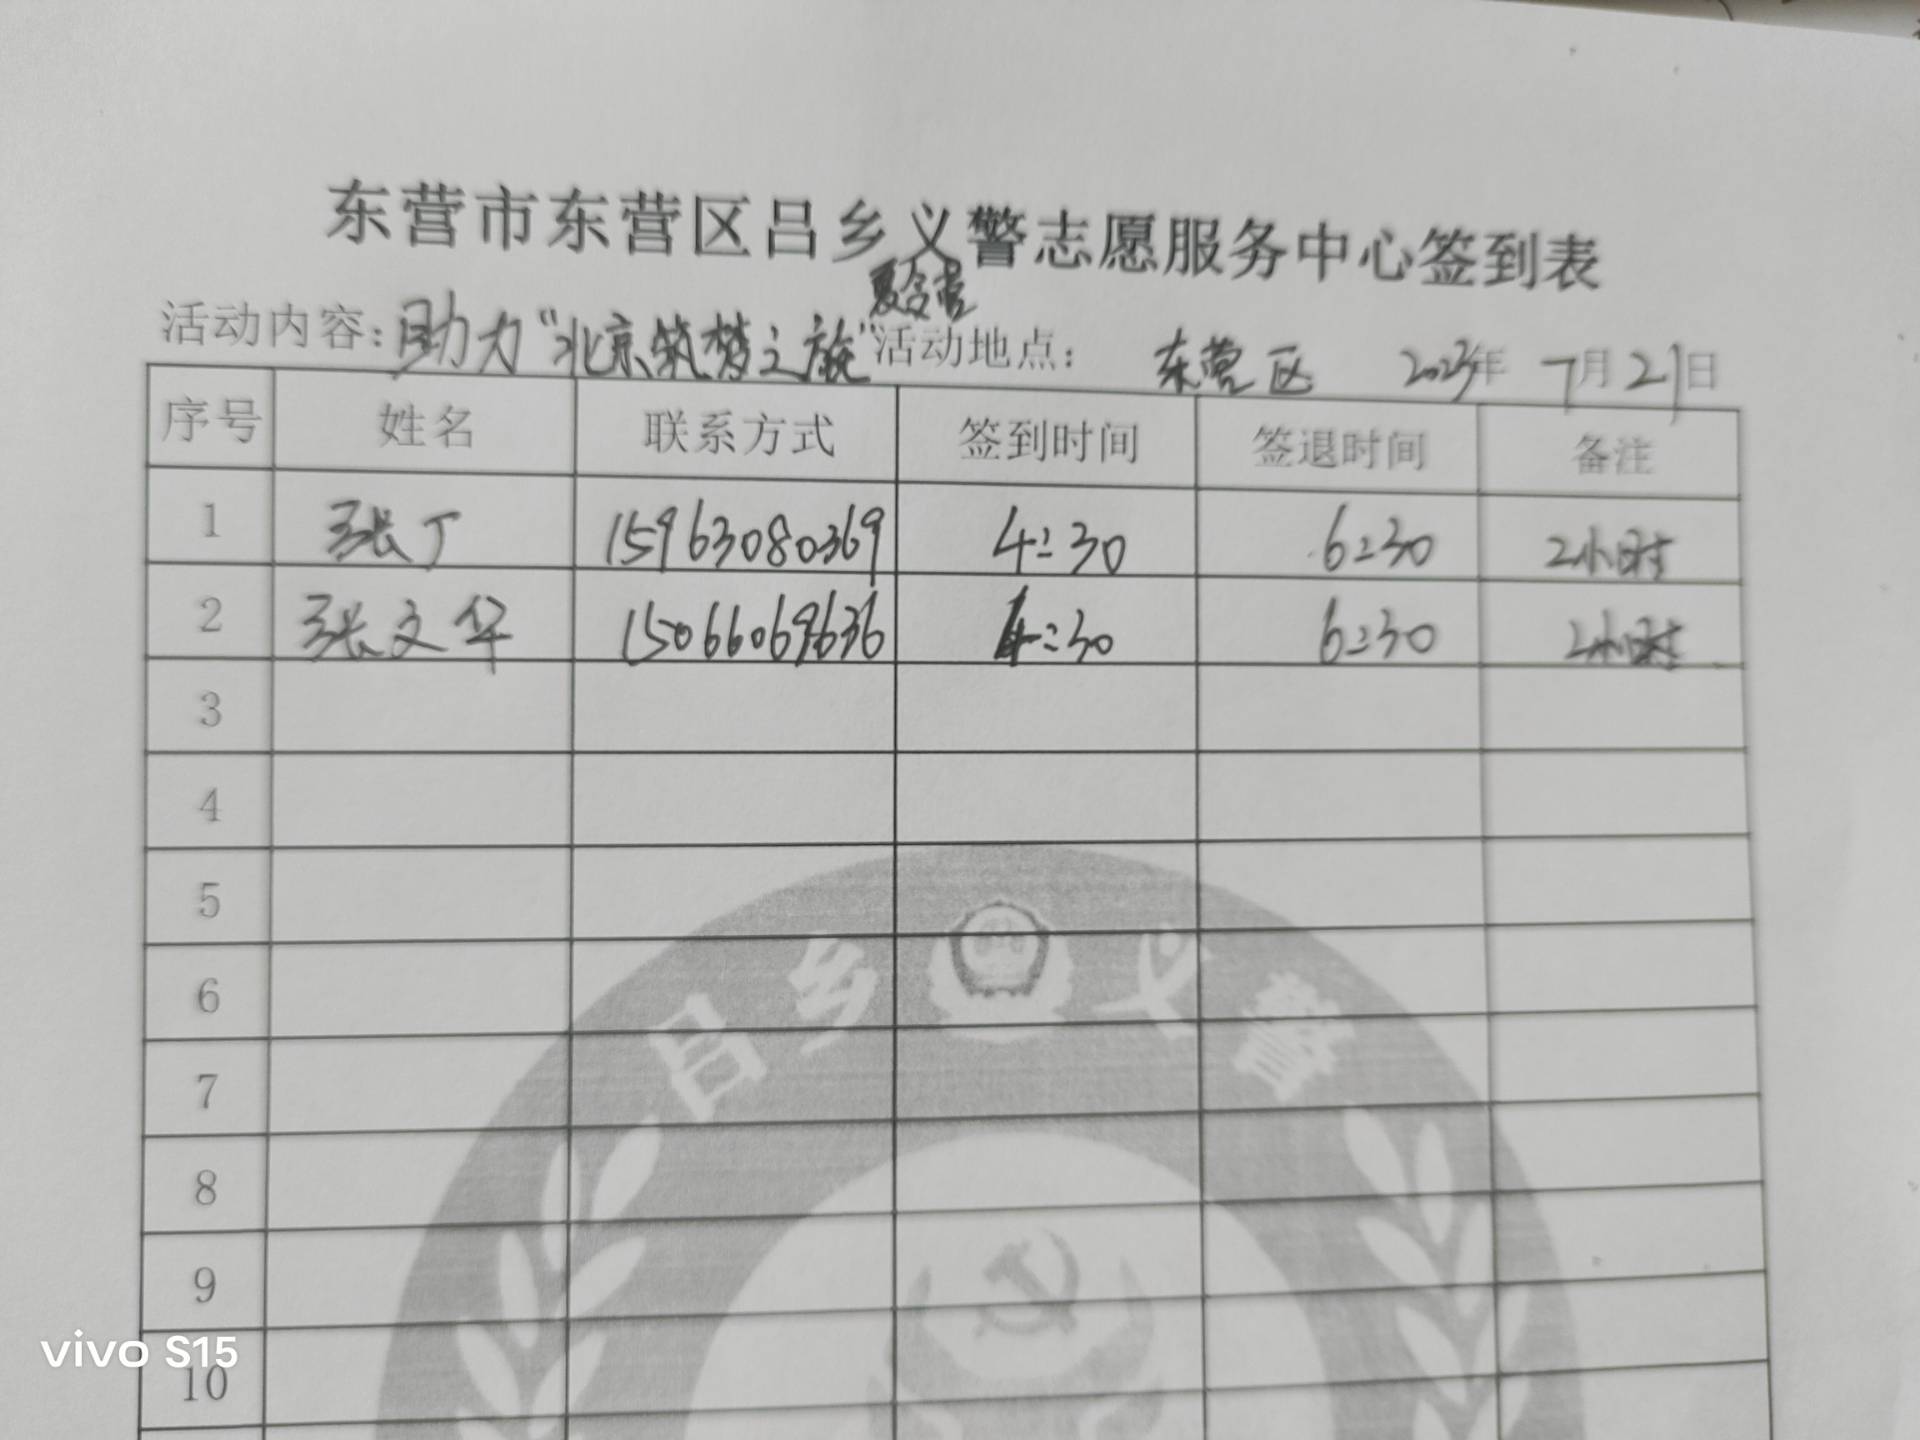 东营市东营区吕乡义警志愿服务中心签到表
夏令营
活动内容：助力“北京筑梦之旅”活动地点： 东营区 2023年 7月21日
序号 姓名 联系方式 签到时间 签退时间 备注
1 张丁 15963080369 4:30 6:30 2小时
2 张文华 15066069636 4:30 6:30 2小时
3
4
5
6
7
8
9
10
吕乡义警
vivo S15